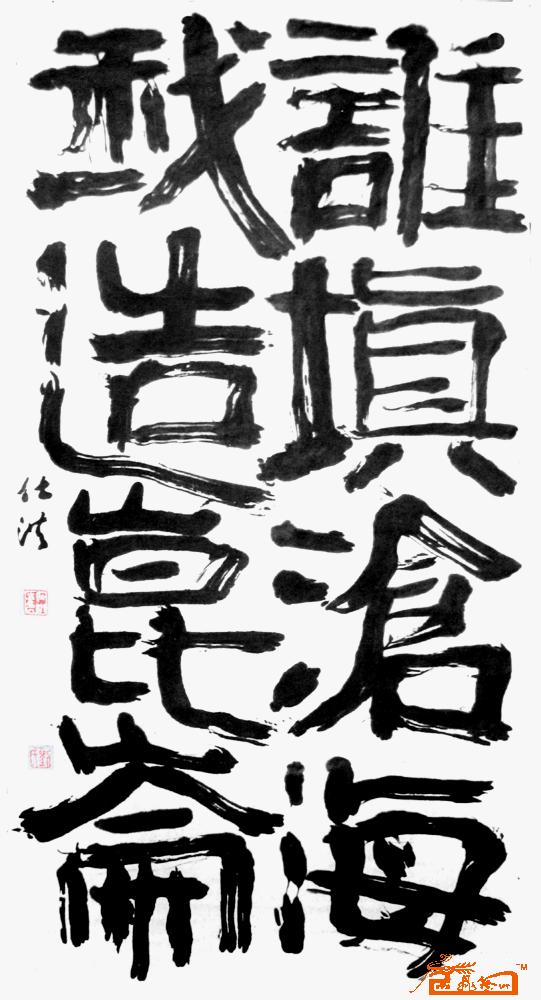 誰填滄海
我造崑崙